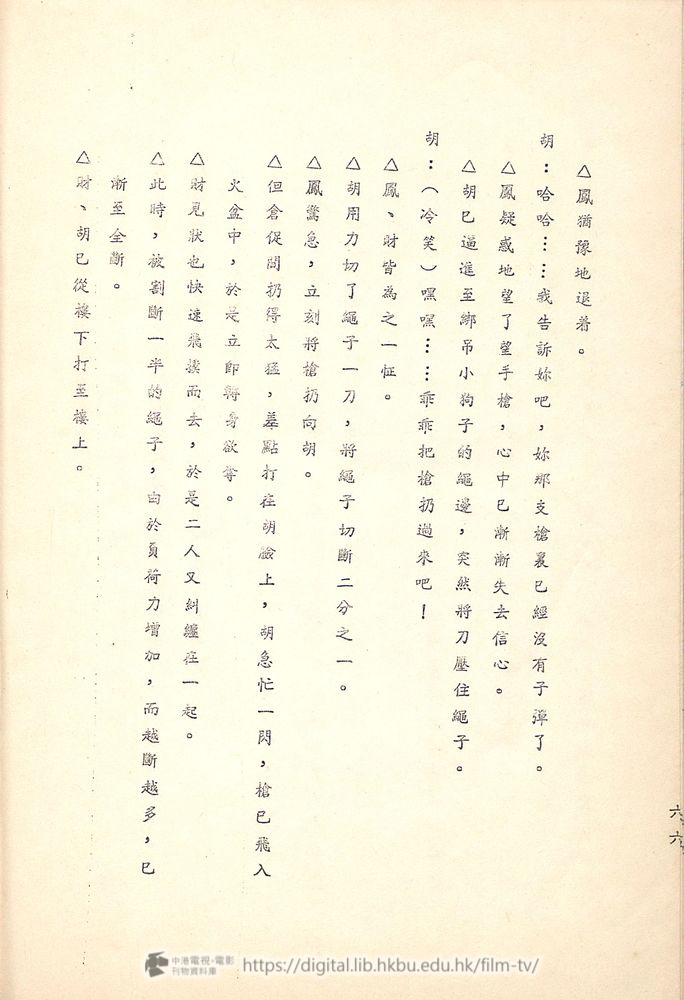 △鳳猶豫地退着。
胡：哈哈……我告訴妳吧，妳那支槍裏已經沒有子彈了。
△鳳疑惑地望了望手槍，心中已漸漸失去信心。
△胡已逼進至綁吊小狗子的繩邊，突然將刀壓住繩子。
胡：（冷笑）嘿嘿……乖乖把槍扔過來吧！
△鳳、財皆為之一怔。
△胡用力切了繩子一刀，將繩子切斷二分之一。
△鳳驚急，立刻將槍扔向胡。
△但倉促間扔得太猛，差點打在胡臉上，胡急忙一閃，槍已飛入
火盆中，於是立即轉身欲奪。
△財見狀也快速飛撲而去，於是二人又糾纏在一起。
△此時，被割斷一半的繩子，由於負荷力增加，而越斷越多，已
漸至全斷。
△財、胡已從樓下打至樓上。
六六
中港電視・電影
刊物資料庫
https://digital.lib.hkbu.edu.hk/film-tv/